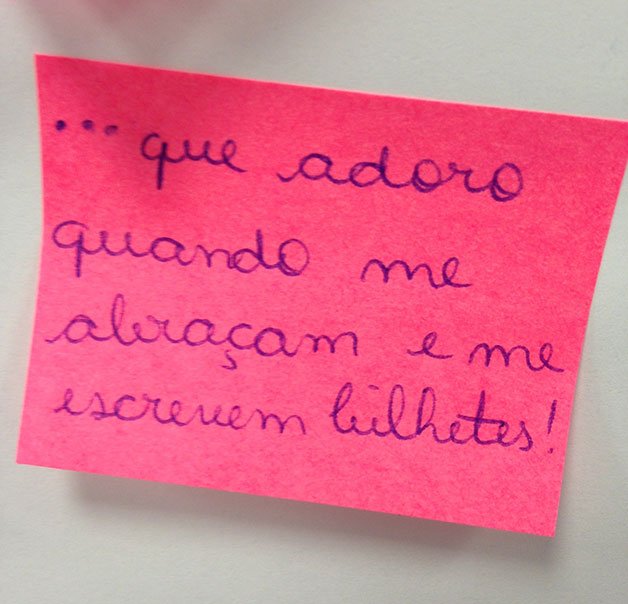 ...que adoro
quando me
abraçam e me
escrevem bilhetes!